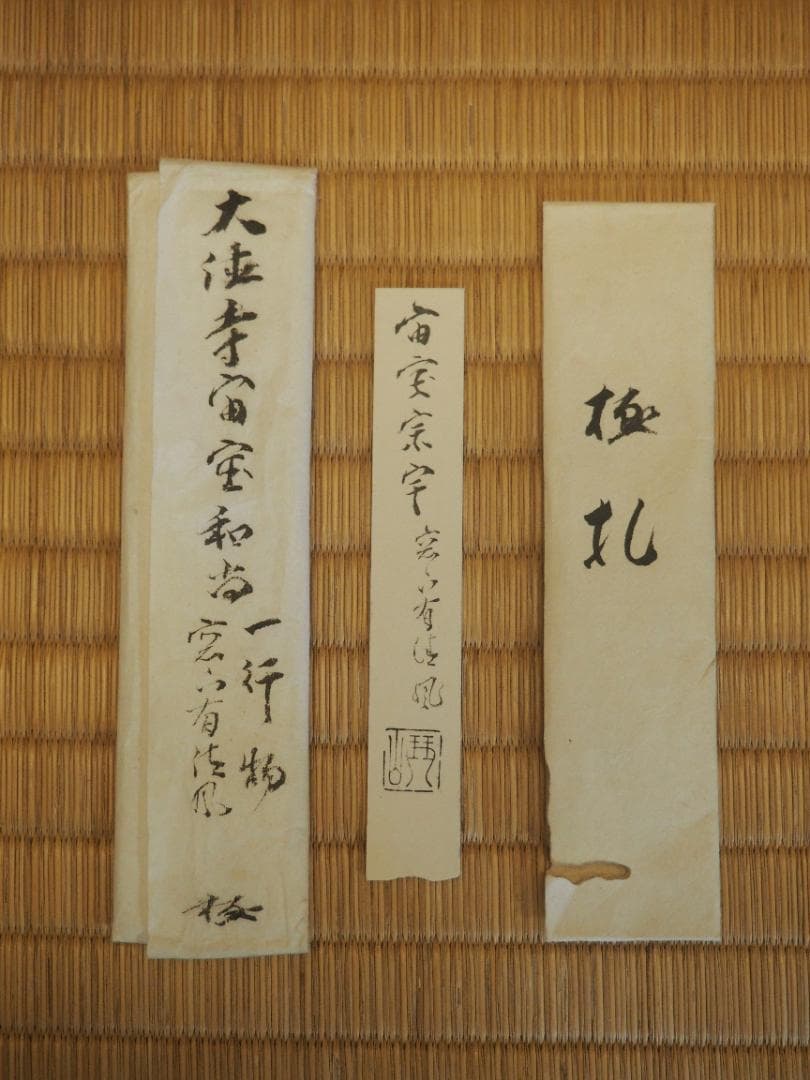 極札
宙宝宗宇 窓下有清風
大徳寺宙宝和尚
一行物
窓下有清風
極